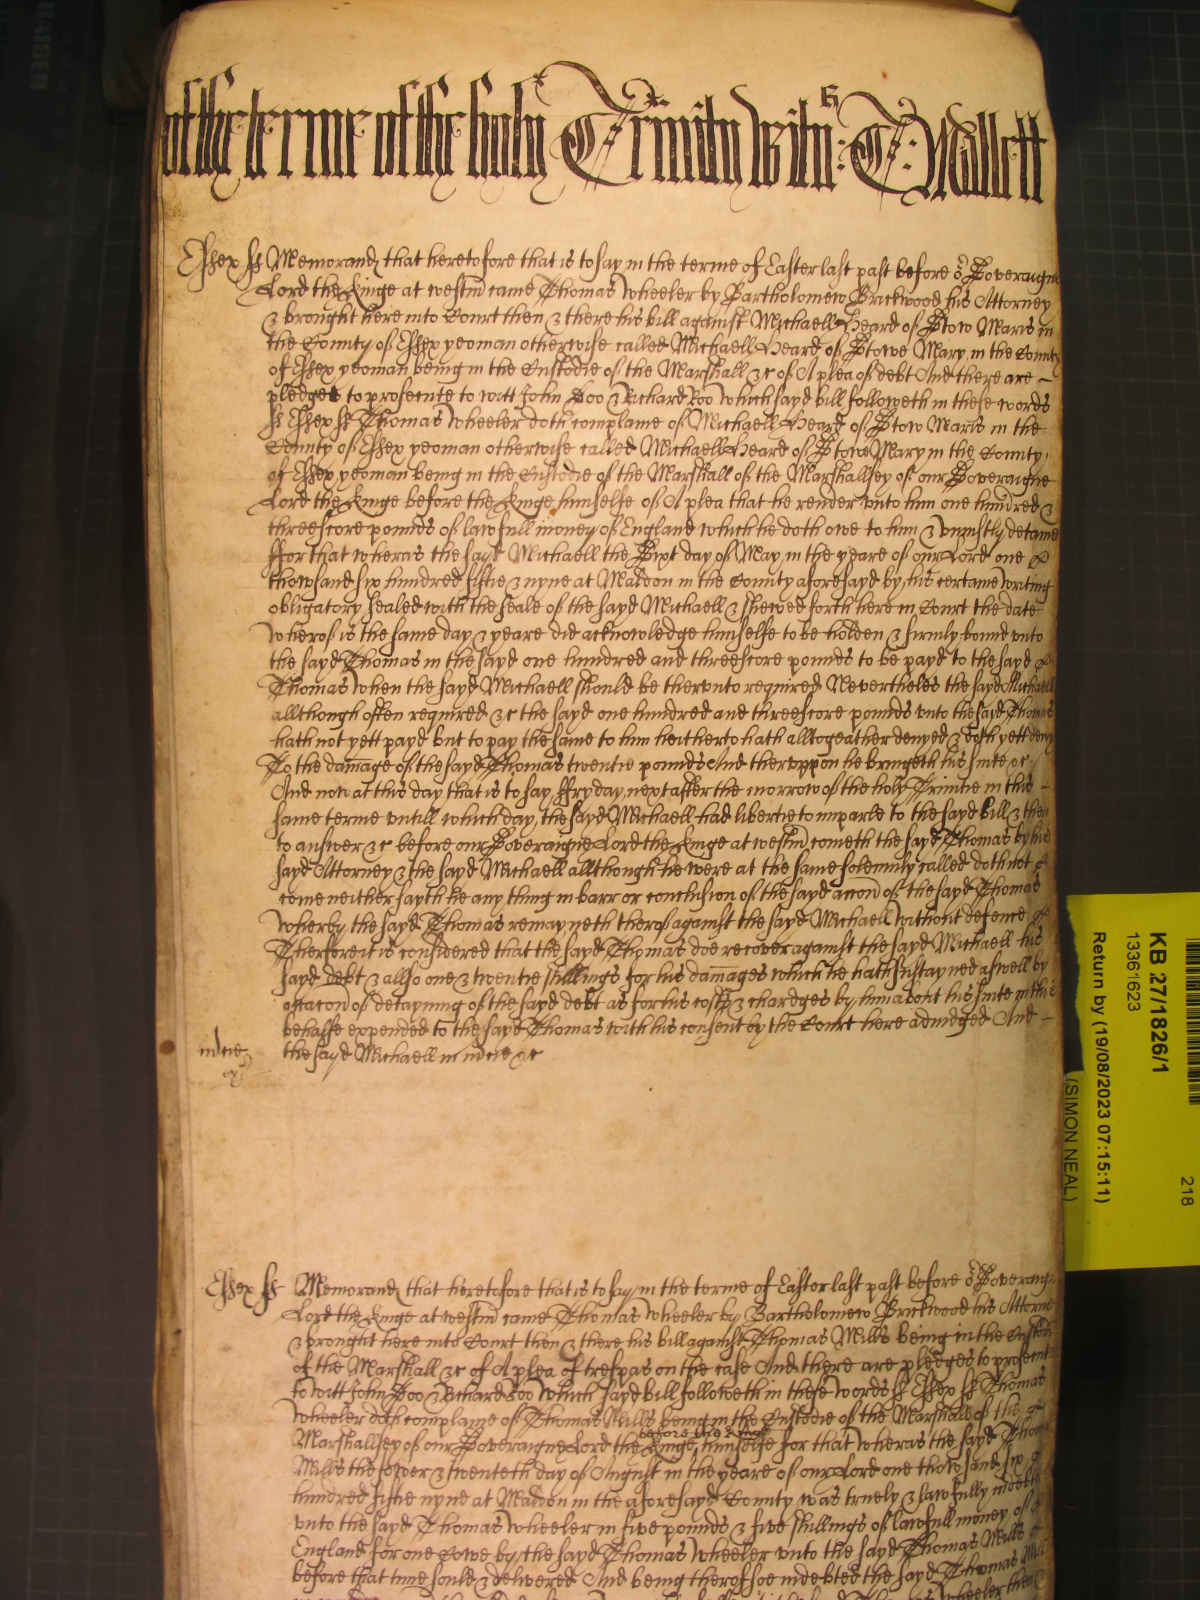 of the terme of the holy Trinity Witn: T: Mallett
Essex ss Memorand that heretofore that is to say in the terme of Easter last past before or Soveraigne
Lord the Kinge at westm came Thomas Wheeler by Bartholomew Brickwood his Attorney
& brought here into Court then & there his bill against Michaell Heard of Stow Maris in
the County of Essex yeoman otherwise called Michaell Heard of Stowe Mary in the County
of Essex yeoman being in the Custodie of the Marshall &c of A plea of debt And there are –
pledges to prosecute to witt John Doo & Richard Roo Which sayd bill followeth in these words
ss Essex ss Thomas Wheeler doth complaine of Michaell Heard of Stow Maris in the
County of Essex yeoman otherwise called Michaell Heard of Stowe Mary in the County
of Essex yeoman being in the Custodie of the Marshall of the Marshallsey of our Soveraigne
Lord the Kinge before the Kinge himselfe of A plea that he render unto him one hundred &
threescore pounds of lawfull money of England which he doth owe to him & uniustly detaine
ffor that wheras the sayd Michaell the Sixt day of May in the yeare of our Lord one
thowsand six hundred fiftie & nyne at Maldon in the County aforesayd by his certaine writing
obligatory sealed with the seale of the sayd Michaell & shewed forth here in Court the date
Wherof is the same day & yeare did acknowledge himselfe to be holden & firmly bound unto
the sayd Thomas in the sayd one hundred and threescore pounds to be payd to the sayd
Thomas When the sayd Michaell should be therunto required Nevertheles the sayd Michaell
allthough often required &c the sayd one hundred and threescore pounds unto the sayd Thomas
hath not yett payd but to pay the same to him heitherto hath alltogeather denyed & doth yett deny
To the damage of the sayd Thomas twentie pounds And theruppon he bringeth his suite &c
And now at this day that is to say ffryday next after the morrow of the holy Trinitie in this –
same terme untill which day the sayd Michaell had libertie to imparle to the sayd bill & then
to answer &c before our Soveraigne Lord the Kinge at westm cometh the sayd Thomas by his
sayd Attorney & the sayd Michaell allthough he were at the same solemnly called doth not
come neither sayth he any thing in barr or conclusion of the sayd accon of the sayd Thomas
wherby the sayd Thomas remayneth therof against the sayd Michaell Without defence
Therfore it is considered that the sayd Thomas doe recover against the sayd Michaell his
sayd debt & allso one & twentie shillings for his damages which he hath sustayned aswell by
occacon of detayning of the sayd debt as for his costs & chardges by him about his suite in this
behalfe expended to the sayd Thomas with his consent by the Court here adiudged And –
the sayd Michaell in mcie &c
in mcie
Essex ss Memorand that heretofore that is to say in the terme of Easter last past before or Soveraigne
Lord the Kinge at westm came Thomas Wheeler by Bartholomew Brickwood his Attorney
& brought here into Court then & there his bill against Thomas Mills being in the Custodie
of the Marshall &c of A plea of trespas on the case And there are pledges to prosecute
to witt John Doo & Richard Roo Which sayd bill followeth in these words ss Essex ss Thomas
Wheeler doth complaine of Thomas Mills being in the Custodie of the Marshall of the
before the Kinge
Marshallsey of our Soveraigne Lord the Kinge himselfe for that wheras the sayd Thomas
Mills the fower & twenteth day of August in the yeare of our Lord one thowsand six
hundred fiftie nyne at Maldon in the aforesayd County was truely & lawfully indebted
unto the sayd Thomas Wheeler in five pounds & five shillings of lawfull money of
England for one Cowe by the sayd Thomas Wheeler unto the sayd Thomas Mills
before that time sould & delivered And being therof soe indebted the sayd Thomas Mills
KB 27/1826/1
13361623
Return by (19/08/2023 07:15:11)
218
(SIMON NEAL)